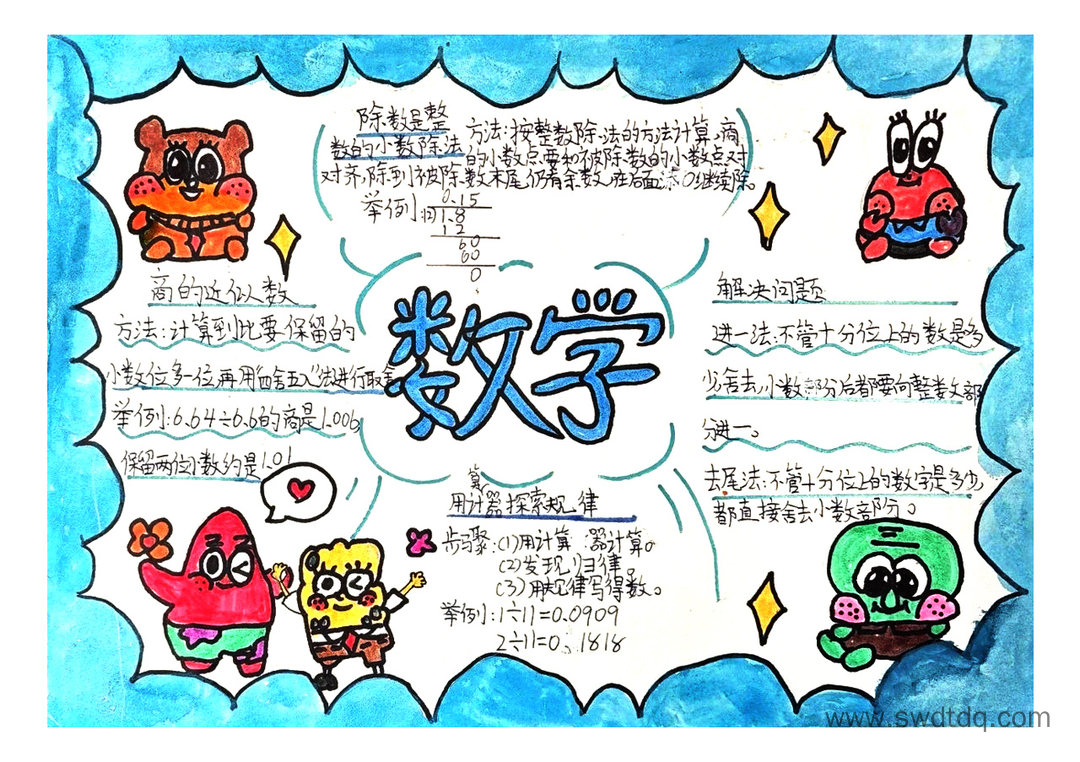 除数是整 方法:按整数除法的方法计算,商
数的小数除法 的小数点要和被除数的小数点对
对齐,除到被除数末尾,仍有余数,在后面添0继续除。
举例
0.15
1.8
12
60
60
0
商的近似数
方法:计算到比要保留的
小数位多一位,再用“四舍五入”法进行取舍
举例:6.64÷6.6的商是1.006,
保留两位小数约是1.01
数学
解决问题
进一法:不管十分位上的数是多
少舍去,小数部分后都要向整数部
分进一。
去尾法:不管十分位上的数字是多少,
都直接舍去小数部分。
算
用计器探索规律
步骤:(1)用计算 器计算。
(2)发现归律。
(3)用规律写得数。
举例:1÷11=0.0909
2÷11=0.1818
www.swdtdq.com